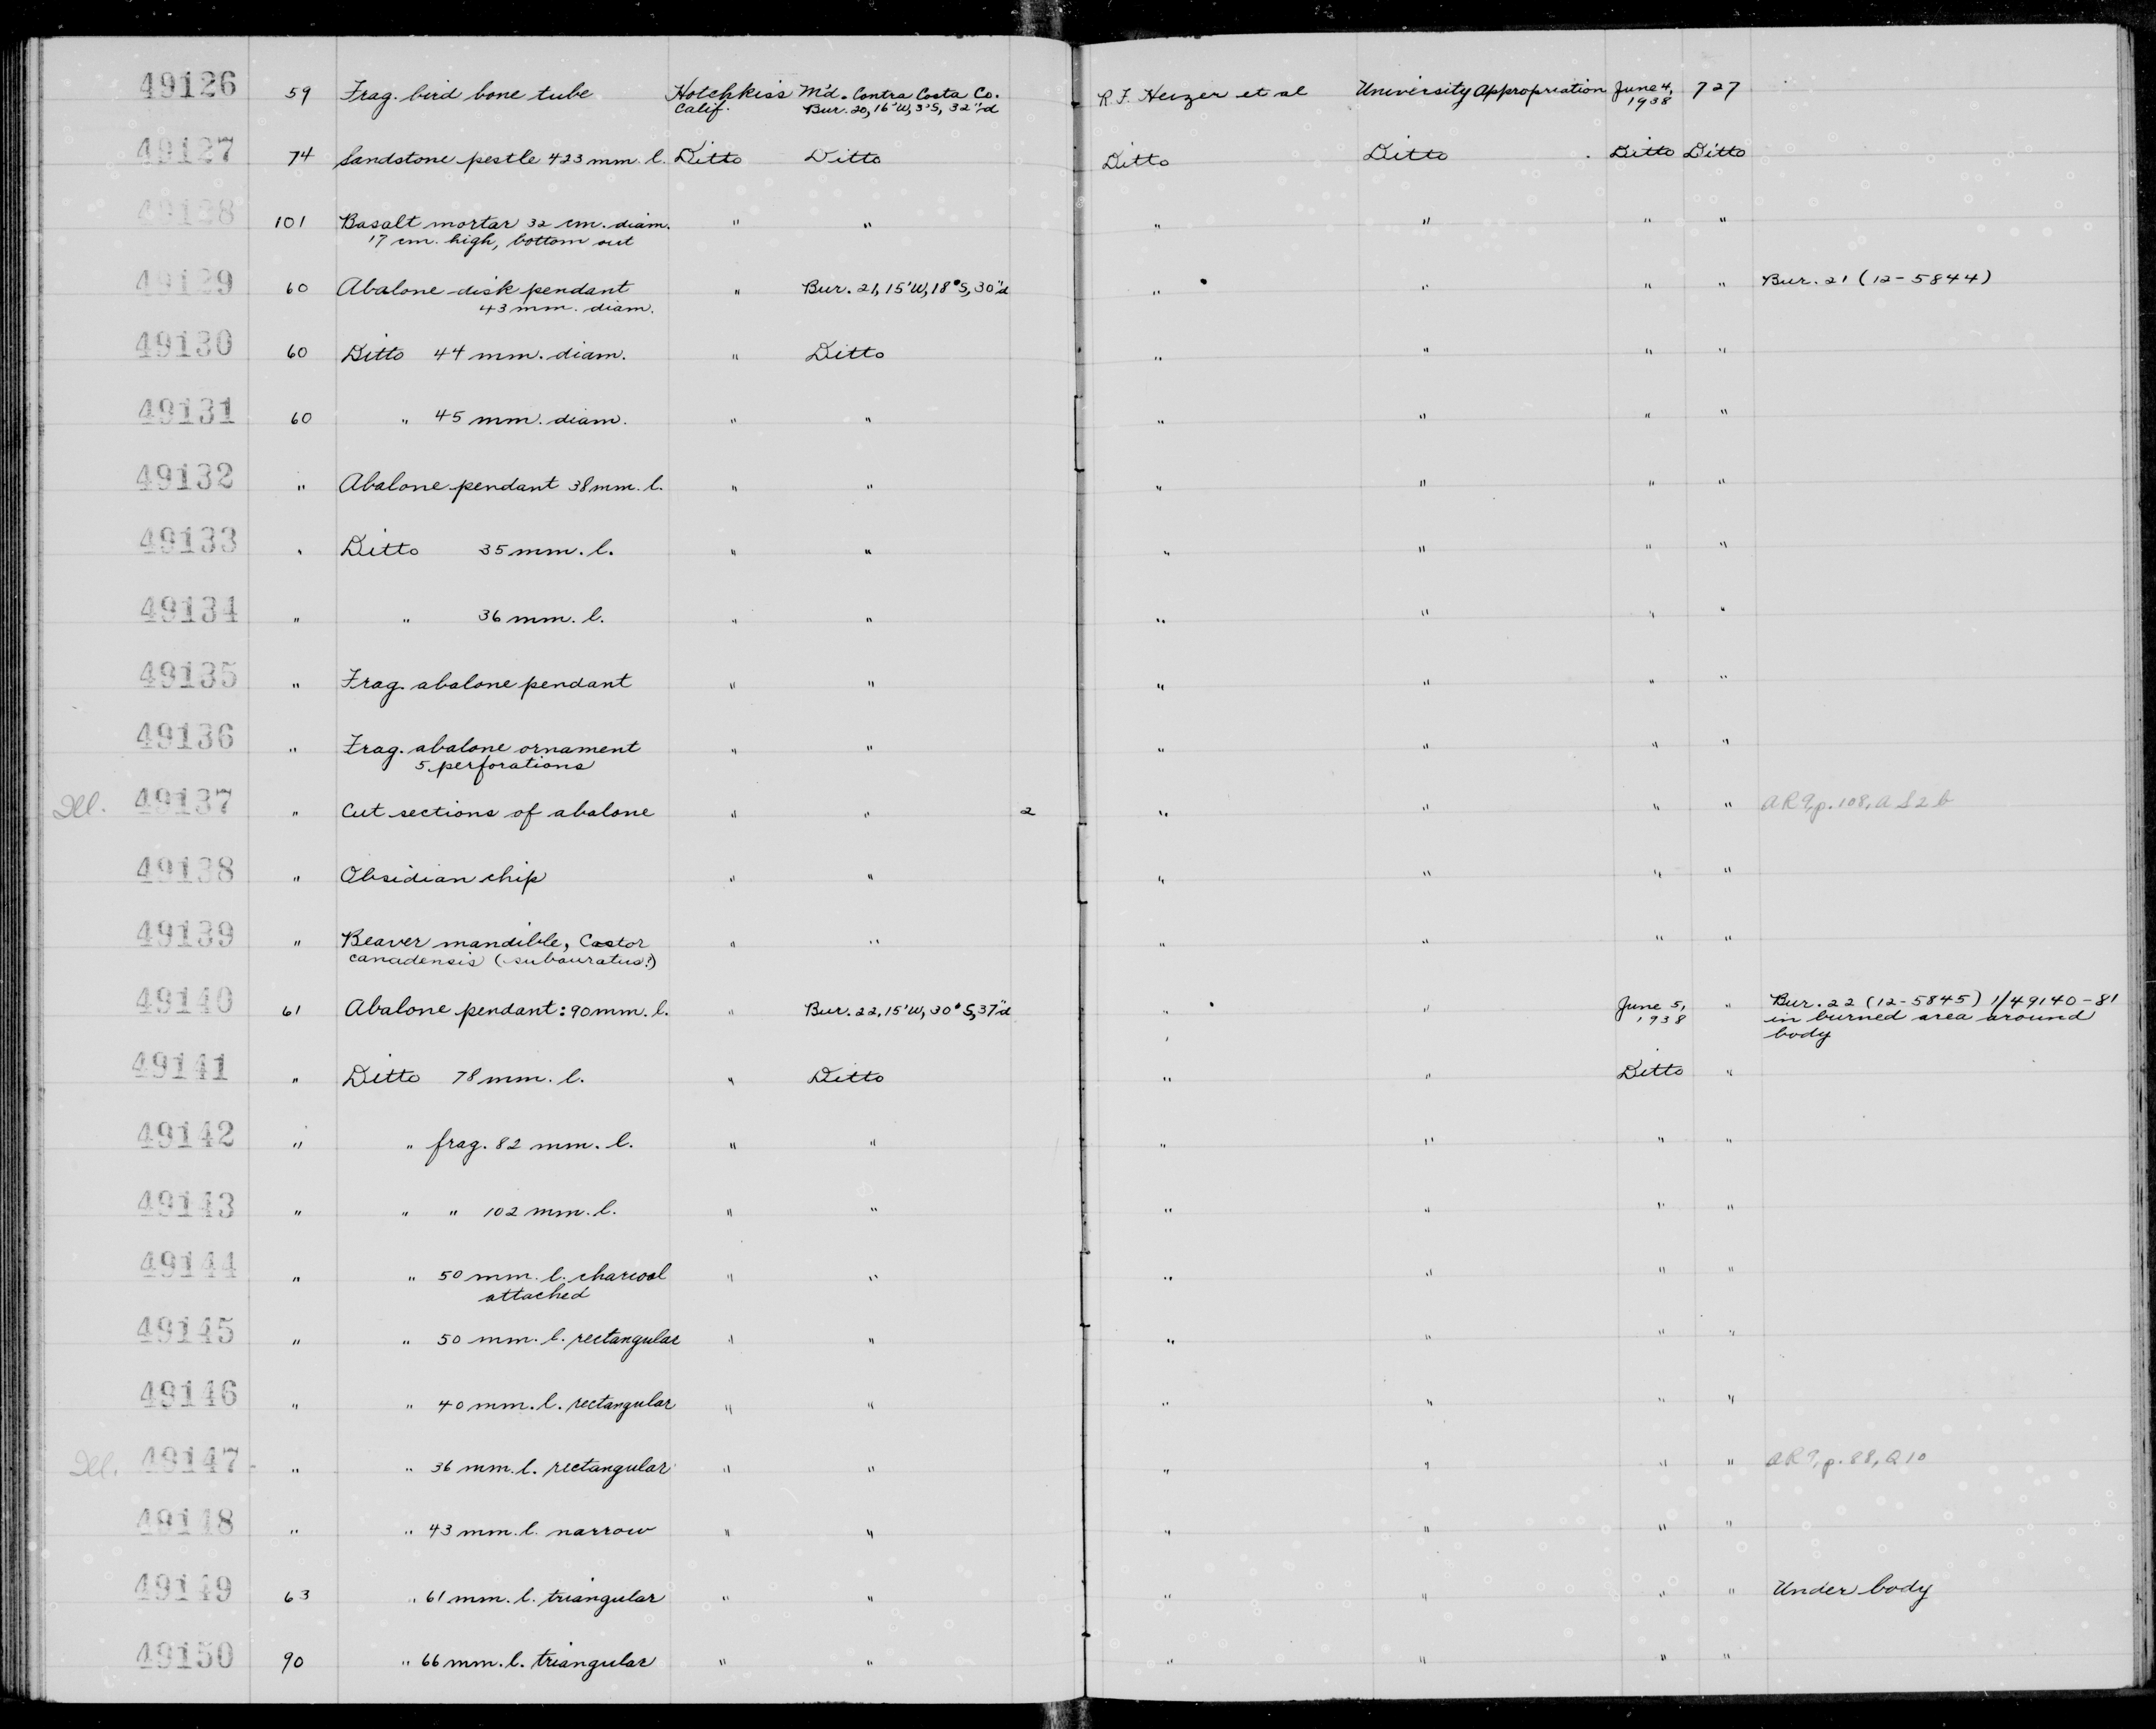 49126 59 Frag. bird bone tube Hotchkiss M'd. Contra Costa Co. R. F. Heizer et al University Appropriation June 4, 727
Calif. Bur. 20, 16'W, 3'S, 32"d 1938
49127 74 Sandstone pestle 423 mm. l. Ditto Ditto Ditto Ditto Ditto Ditto
49128 101 Basalt mortar 32 cm. diam. " " " " " "
17 cm. high, bottom out
49129 60 Abalone disk pendant " Bur. 21, 15'W, 18'S, 30"d " " " " Bur. 21 (12-5844)
43 mm. diam.
49130 60 Ditto 44 mm. diam. " Ditto " " " "
49131 60 " 45 mm. diam. " " " " " "
49132 " Abalone pendant 38 mm. l. " " " " " "
49133 " Ditto 35 mm. l. " " " " " "
49134 " " 36 mm. l. " " " " " "
49135 " Frag. abalone pendant " " " " " "
49136 " Frag. abalone ornament " " " " " "
5 perforations
Del. 49137 " Cut sections of abalone " " 2 " " " " AR9, p. 108, AS2b
49138 " Obsidian chip " " " " " "
49139 " Beaver mandible, Castor " " " " " "
canadensis (subauratus?)
49140 61 Abalone pendant: 90 mm. l. " Bur. 22, 15'W, 30'S, 37"d " " June 5, " Bur. 22 (12-5845) 1/49140-81
1938 in burned area around
body
49141 " Ditto 78 mm. l. " Ditto " " Ditto "
49142 " " frag. 82 mm. l. " " " " " "
49143 " " " 102 mm. l. " " " " " "
49144 " " 50 mm. l. charcoal " " " " " "
attached
49145 " " 50 mm. l. rectangular " " " " " "
49146 " " 40 mm. l. rectangular " " " " " "
Del. 49147 " " 36 mm. l. rectangular " " " " " " AR9, p. 88, Q10
49148 " " 43 mm. l. narrow " " " " " "
49149 63 " 61 mm. l. triangular " " " " " " Under body
49150 90 " 66 mm. l. triangular " " " " " "